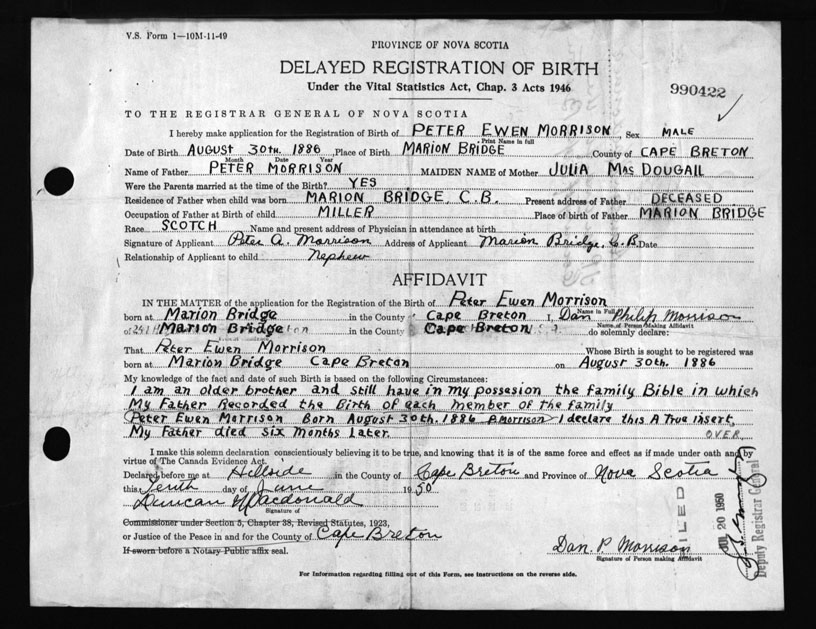 V.S. Form 1—10M-11-49
PROVINCE OF NOVA SCOTIA
DELAYED REGISTRATION OF BIRTH
Under the Vital Statistics Act, Chap. 3 Acts 1946
990422
TO THE REGISTRAR GENERAL OF NOVA SCOTIA
I hereby make application for the Registration of Birth of PETER EWEN MORRISON, Sex MALE
Print Name in full
Date of Birth AUGUST 30TH. 1886 Place of Birth MARION BRIDGE County of CAPE BRETON
Month Date Year
Name of Father PETER MORRISON MAIDEN NAME of Mother JULIA MAC DOUGALL
Were the Parents married at the time of the Birth? YES
Residence of Father when child was born MARION BRIDGE, C.B. Present address of Father DECEASED
Occupation of Father at Birth of child MILLER Place of birth of Father MARION BRIDGE
Race SCOTCH Name and present address of Physician in attendance at birth
Signature of Applicant Peter A. Morrison Address of Applicant Marion Bridge, C.B. Date
Relationship of Applicant to child Nephew
AFFIDAVIT
IN THE MATTER of the application for the Registration of the Birth of Peter Ewen Morrison
Name in Full
born at Marion Bridge in the County Cape Breton I, Dan Philip Morrison
Name of Person Making Affidavit
of Marion Bridge in the County Cape Breton do solemnly declare:
That Peter Ewen Morrison Whose Birth is sought to be registered was
born at Marion Bridge Cape Breton on August 30th. 1886
My knowledge of the fact and date of such Birth is based on the following Circumstances:
I am an older brother and still have in my possesion the family Bible in which
My Father Recorded the Birth of each member of the family
Peter Ewen Morrison Born August 30th. 1886 P Morrison I declare this A True insert.
My Father died six months Later. OVER
I make this solemn declaration conscientiously believing it to be true, and knowing that it is of the same force and effect as if made under oath and by
virtue of The Canada Evidence Act.
Declared before me at Hillside in the County of Cape Breton and Province of Nova Scotia
this Tenth day of June 1950
Duncan McDonald
Signature of
Commissioner under Section 5, Chapter 38, Revised Statutes, 1923,
or Justice of the Peace in and for the County of Cape Breton
If sworn before a Notary Public affix seal.
Dan. P. Morrison
Signature of Person making Affidavit
FILED
JUL 20 1950
Deputy Registrar General
For Information regarding filling out of this Form, see instructions on the reverse side.